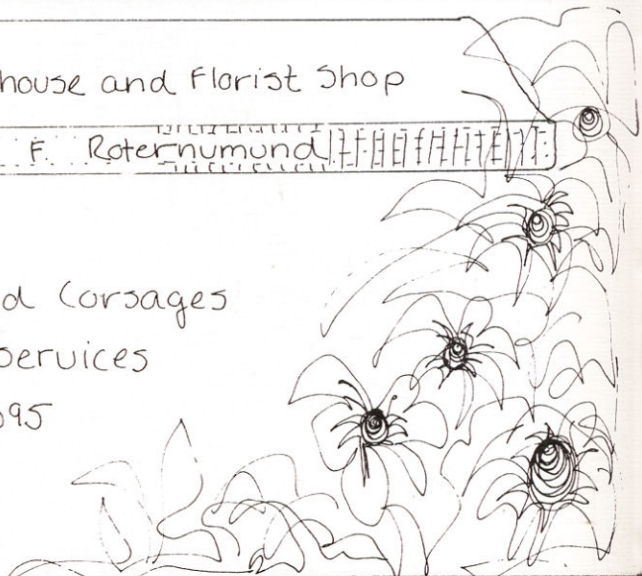 house and Florist Shop
F. Roternumund
d Corsages
services
095